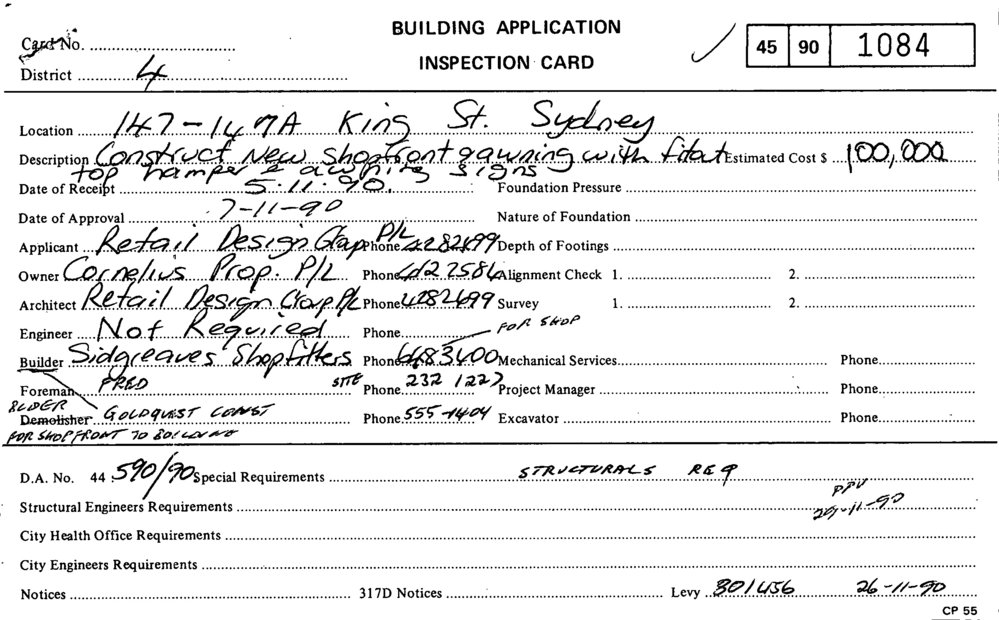 BUILDING APPLICATION
INSPECTION CARD
45 90 1084
Card No.
District 4
Location 147-147A King St. Sydney
Description Construct New Shopfront & awning with fitout Estimated Cost $ 100,000
top hamper & awning signs
Date of Receipt 5.11.90. Foundation Pressure
Date of Approval 7-11-90 Nature of Foundation
Applicant Retail Design Group P/L Phone 4282699 Depth of Footings
Owner Cornelius Prop. P/L Phone Alignment Check 1. 2.
Architect Retail Design Group P/L Phone 4282699 Survey 1. 2.
Engineer Not Required Phone FOR SHOP
Builder Sidgreaves Shopfitters Phone 6483400 Mechanical Services Phone
Foreman FRED SITE Phone 232 1227 Project Manager Phone
BLDER
Demolisher GOLDQUEST CONST Phone 555-1404 Excavator Phone
FOR SHOPFRONT TO BUILDING
D.A. No. 44 590/90 Special Requirements STRUCTURALS REQ
Structural Engineers Requirements PPV 26-11-90
City Health Office Requirements
City Engineers Requirements
Notices 317D Notices Levy 801456 26-11-90
CP 55